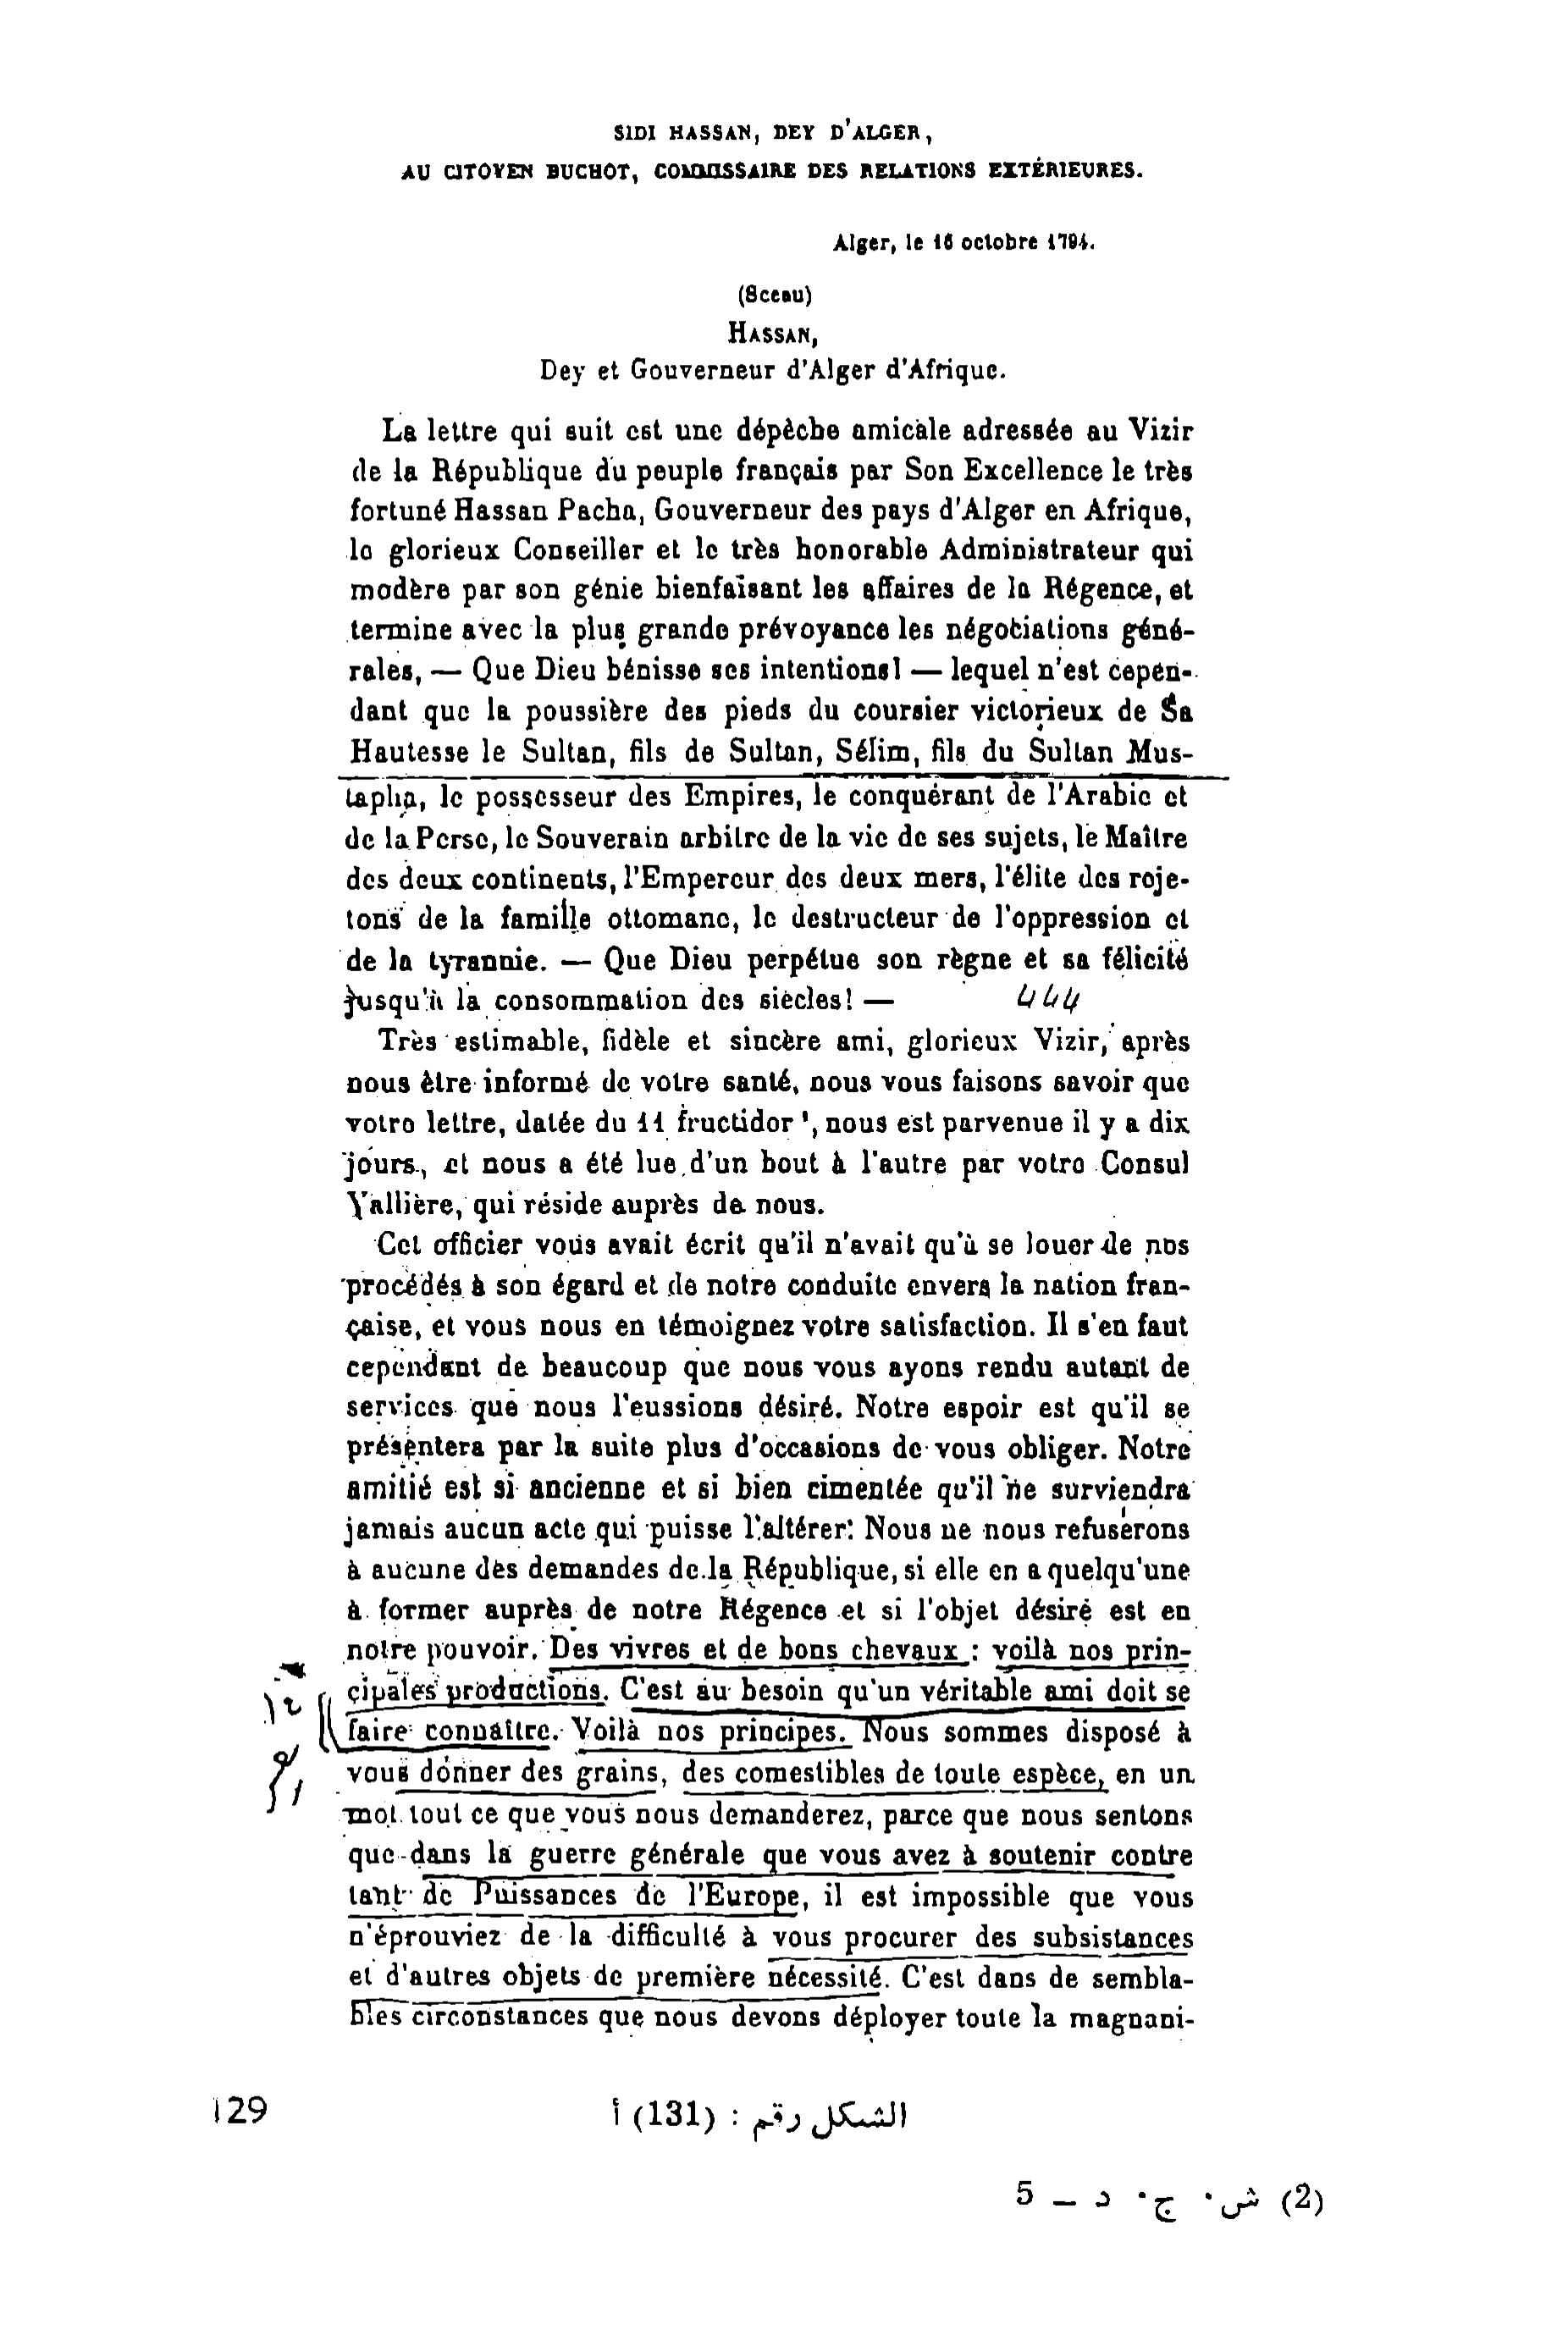 SIDI HASSAN, DEY D'ALGER,
AU CITOYEN BUCHOT, COMMISSAIRE DES RELATIONS EXTÉRIEURES.
Alger, le 16 octobre 1794.
(Sceau)
HASSAN,
Dey et Gouverneur d'Alger d'Afrique.
La lettre qui suit est une dépêche amicale adressée au Vizir
de la République du peuple français par Son Excellence le très
fortuné Hassan Pacha, Gouverneur des pays d'Alger en Afrique,
le glorieux Conseiller et le très honorable Administrateur qui
modère par son génie bienfaisant les affaires de la Régence, et
termine avec la plus grande prévoyance les négociations géné-
rales, — Que Dieu bénisse ses intentions! — lequel n'est cepen-
dant que la poussière des pieds du coursier victorieux de Sa
Hautesse le Sultan, fils de Sultan, Sélim, fils du Sultan Mus-
tapha, le possesseur des Empires, le conquérant de l'Arabie et
de la Perse, le Souverain arbitre de la vie de ses sujets, le Maître
des deux continents, l'Empereur des deux mers, l'élite des reje-
tons de la famille ottomane, le destructeur de l'oppression et
de la tyrannie. — Que Dieu perpétue son règne et sa félicité
jusqu'à la consommation des siècles! — 444
Très estimable, fidèle et sincère ami, glorieux Vizir, après
nous être informé de votre santé, nous vous faisons savoir que
votre lettre, datée du 11 fructidor ¹, nous est parvenue il y a dix
jours, et nous a été lue d'un bout à l'autre par votre Consul
Vallière, qui réside auprès de nous.
Cet officier vous avait écrit qu'il n'avait qu'à se louer de nos
procédés à son égard et de notre conduite envers la nation fran-
çaise, et vous nous en témoignez votre satisfaction. Il s'en faut
cependant de beaucoup que nous vous ayons rendu autant de
services que nous l'eussions désiré. Notre espoir est qu'il se
présentera par la suite plus d'occasions de vous obliger. Notre
amitié est si ancienne et si bien cimentée qu'il ne surviendra
jamais aucun acte qui puisse l'altérer: Nous ne nous refuserons
à aucune des demandes de la République, si elle en a quelqu'une
à former auprès de notre Régence et si l'objet désiré est en
notre pouvoir. Des vivres et de bons chevaux : voilà nos prin-
cipales productions. C'est au besoin qu'un véritable ami doit se
faire connaître. Voilà nos principes. Nous sommes disposé à
vous donner des grains, des comestibles de toute espèce, en un
mot tout ce que vous nous demanderez, parce que nous sentons
que dans la guerre générale que vous avez à soutenir contre
tant de Puissances de l'Europe, il est impossible que vous
n'éprouviez de la difficulté à vous procurer des subsistances
et d'autres objets de première nécessité. C'est dans de sembla-
bles circonstances que nous devons déployer toute la magnani-
129
الشكل رقم : (131) أ
(2) ش. ج. د – 5